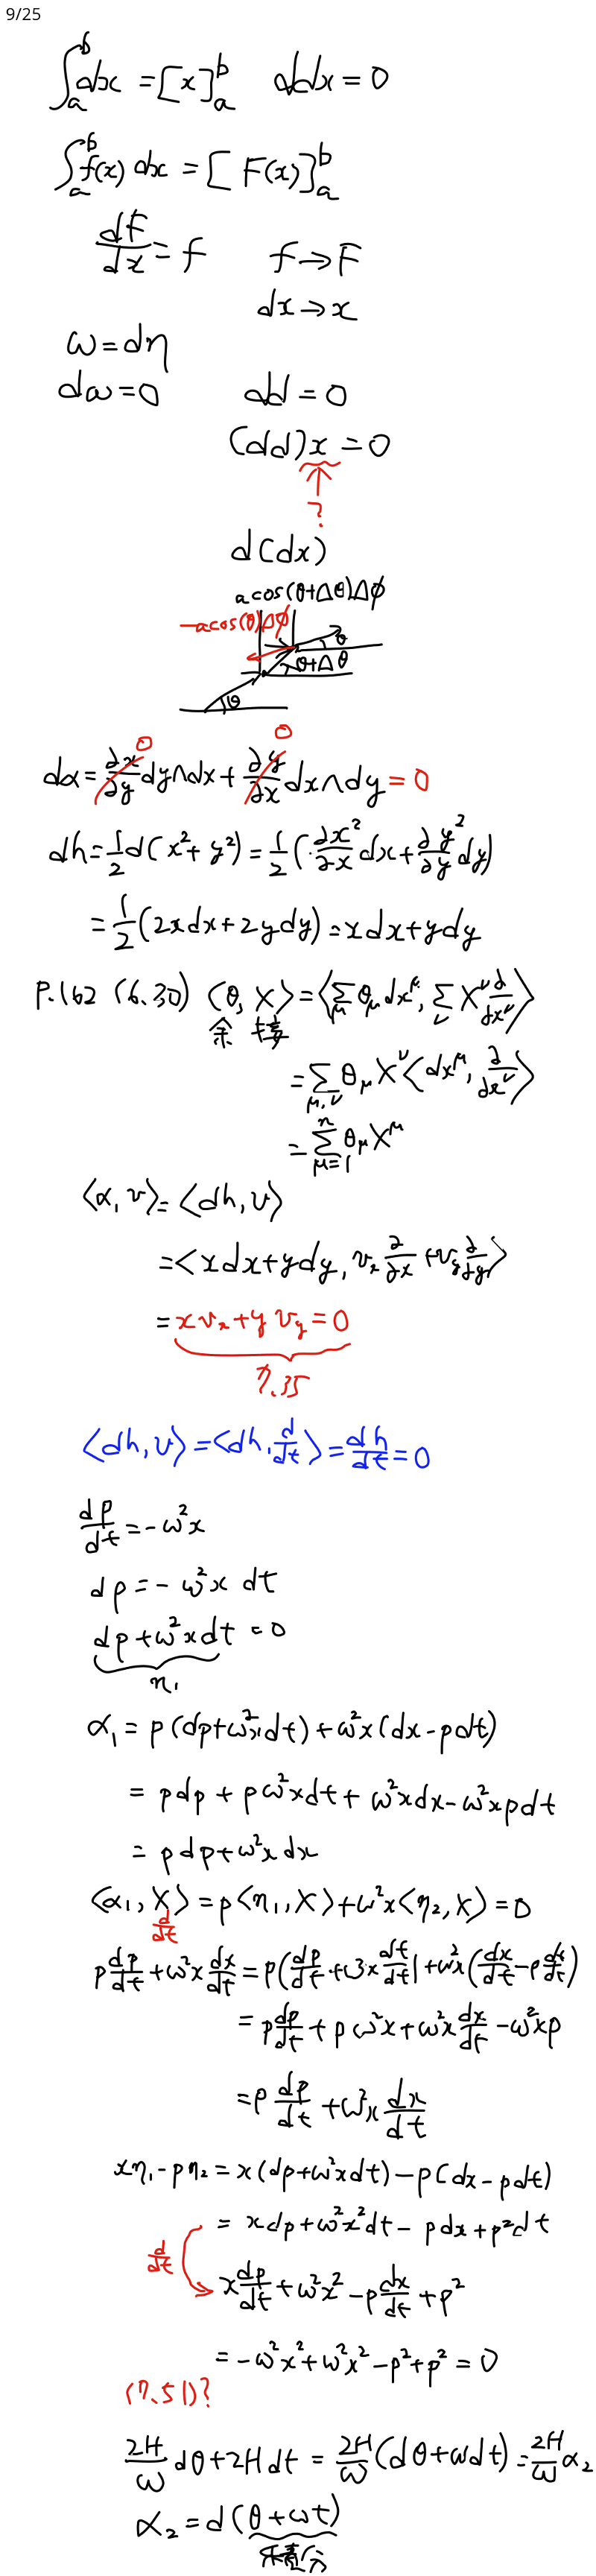 9/25
∫_a^b dx = [x]_a^b  ddx = 0
∫_a^b f(x) dx = [F(x)]_a^b
dF/dx = f  f → F
dx → x
ω = dη
dω = 0  dd = 0
(dd)x = 0
↑
?
d(dx)
a cos(θ+Δθ)Δϕ
-a cos(θ)Δϕ
θ
θ+Δθ
θ
dα = ∂x/∂y dy∧dx + ∂y/∂x dx∧dy = 0
0 0
dh = 1/2 d(x²+y²) = 1/2 (∂x²/∂x dx + ∂y²/∂y dy)
= 1/2 (2xdx + 2ydy) = xdx + ydy
P.162 (6.30) ⟨θ, X⟩ = ⟨Σ_μ θ_μ dx^μ, Σ_ν X^ν ∂/∂x^ν⟩
余 接
= Σ_{μ,ν} θ_μ X^ν ⟨dx^μ, ∂/∂x^ν⟩
= Σ_{μ=1}^n θ_μ X^μ
⟨α, v⟩ = ⟨dh, v⟩
= ⟨xdx + ydy, v_x ∂/∂x + v_y ∂/∂y⟩
= x v_x + y v_y = 0
7.35
⟨dh, v⟩ = ⟨dh, d/dt⟩ = dh/dt = 0
dp/dt = -ω²x
dp = -ω²x dt
dp + ω²xdt = 0
η₁
α₁ = p(dp + ω²xdt) + ω²x(dx - pdt)
= pdp + pω²xdt + ω²xdx - ω²xpdt
= pdp + ω²xdx
⟨α₁, X⟩ = p⟨η₁, X⟩ + ω²x⟨η₂, X⟩ = 0
d/dt
p dp/dt + ω²x dx/dt = p(dp/dt + ω²x dt/dt) + ω²x(dx/dt - p dt/dt)
= p dp/dt + pω²x + ω²x dx/dt - ω²xp
= p dp/dt + ω²x dx/dt
xη₁ - pη₂ = x(dp + ω²xdt) - p(dx - pdt)
= xdp + ω²x²dt - pdx + p²dt
d/dt
x dp/dt + ω²x² - p dx/dt + p²
= -ω²x² + ω²x² - p² + p² = 0
(7.51)?
2H/ω dθ + 2Hdt = 2H/ω (dθ + ωdt) = 2H/ω α₂
α₂ = d(θ + ωt)